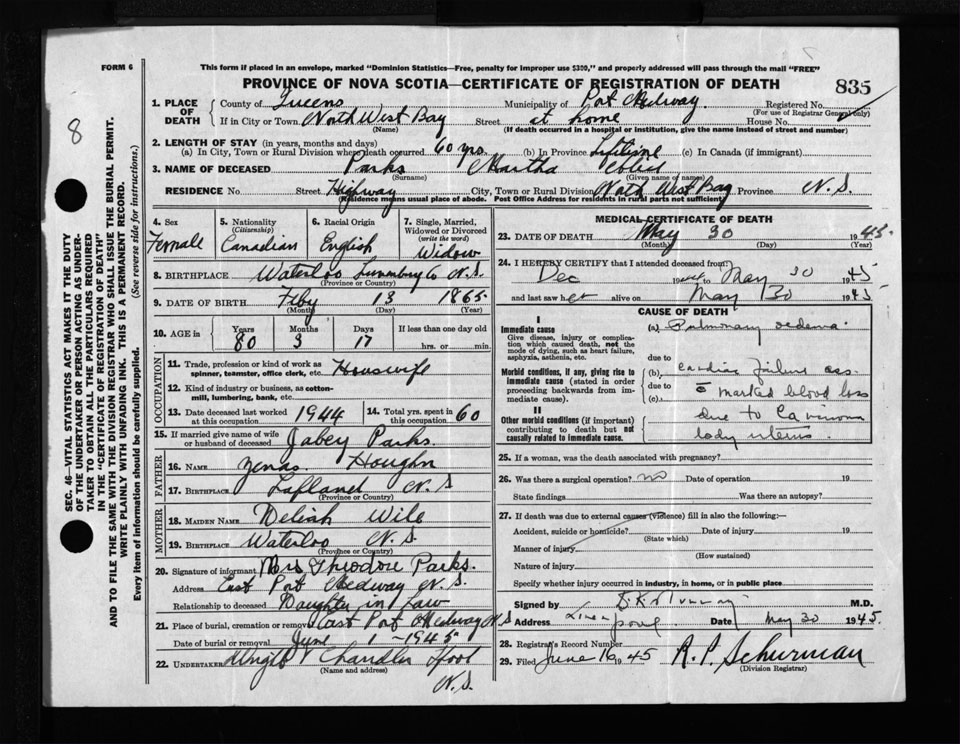 FORM 6
This form if placed in an envelope, marked "Dominion Statistics—Free, penalty for improper use $300," and properly addressed will pass through the mail "FREE"
PROVINCE OF NOVA SCOTIA—CERTIFICATE OF REGISTRATION OF DEATH
835
8
SEC. 46—VITAL STATISTICS ACT MAKES IT THE DUTY
OF THE UNDERTAKER OR PERSON ACTING AS UNDER-
TAKER TO OBTAIN ALL THE PARTICULARS REQUIRED
IN THE "CERTIFICATE OF REGISTRATION OF DEATH"
AND TO FILE THE SAME WITH THE DIVISION REGISTRAR WHO SHALL ISSUE THE BURIAL PERMIT.
WRITE PLAINLY WITH UNFADING INK. THIS IS A PERMANENT RECORD.
Every item of information should be carefully supplied. (See reverse side for instructions.)
1. PLACE OF DEATH
County of Queens Municipality of Port Medway Registered No.
(For use of Registrar General only)
If in City or Town North West Bay Street at home House No.
(Name) (If death occurred in a hospital or institution, give the name instead of street and number)
2. LENGTH OF STAY (in years, months and days)
(a) In City, Town or Rural Division where death occurred 60 yrs. (b) In Province Lifetime (c) In Canada (if immigrant)
3. NAME OF DECEASED Parks Martha
(Surname) (Given name or names)
RESIDENCE No Street Highway City, Town or Rural Division North West Bay Province N.S.
(Residence means usual place of abode. Post Office Address for residents in rural parts not sufficient)
4. Sex
Female
5. Nationality
(Citizenship)
Canadian
6. Racial Origin
English
7. Single, Married, Widowed or Divorced
(write the word)
Widow
8. BIRTHPLACE Waterloo Lunenburg Co N.S.
(Province or Country)
9. DATE OF BIRTH Feby 13 1865
(Month) (Day) (Year)
10. AGE in Years Months Days If less than one day old
80 3 17 hrs. or min.
OCCUPATION
11. Trade, profession or kind of work as
spinner, teamster, office clerk, etc. Housewife
12. Kind of industry or business, as cotton-
mill, lumbering, bank, etc.
13. Date deceased last worked
at this occupation 1944
14. Total yrs. spent in
this occupation 60
15. If married give name of wife
or husband of deceased Jabey Parks.
FATHER
16. NAME Zenas Houghn
17. BIRTHPLACE Lapland N.S
(Province or Country)
MOTHER
18. MAIDEN NAME Deliah Wile
19. BIRTHPLACE Waterloo N.S.
(Province or Country)
20. Signature of informant Mrs Theodore Parks.
Address East Port Medway N.S.
Relationship to deceased Daughter in Law
21. Place of burial, cremation or removal East Port Medway N.S
Date of burial or removal June 1-1945
22. UNDERTAKER Chandler
(Name and address)
N.S.
MEDICAL CERTIFICATE OF DEATH
23. DATE OF DEATH May 30 1945
(Month) (Day) (Year)
24. I HEREBY CERTIFY that I attended deceased from:
Dec 19 to May 30 1945
and last saw her alive on May 30 1945
CAUSE OF DEATH
I
Immediate cause
Give disease, injury or complica-
tion which caused death, not the
mode of dying, such as heart failure,
asphyxia, asthenia, etc.
(a) Pulmonary oedema
due to
Morbid conditions, if any, giving rise to
immediate cause (stated in order
proceeding backwards from im-
mediate cause).
(b) cardiac failure ass.
due to
(c) marked blood loss
II
Other morbid conditions (if important)
contributing to death but not
causally related to immediate cause.
due to Ca
body uterus.
25. If a woman, was the death associated with pregnancy?
26. Was there a surgical operation? no Date of operation 19
State findings Was there an autopsy?
27. If death was due to external causes (violence) fill in also the following:—
Accident, suicide or homicide? Date of injury 19
(State which)
Manner of injury
(How sustained)
Nature of injury
Specify whether injury occurred in industry, in home, or in public place
Signed by M.D.
Address Liverpool Date May 30 1945.
28. Registrar's Record Number
29. Filed June 16 1945 R. P. Schurman
(Division Registrar)